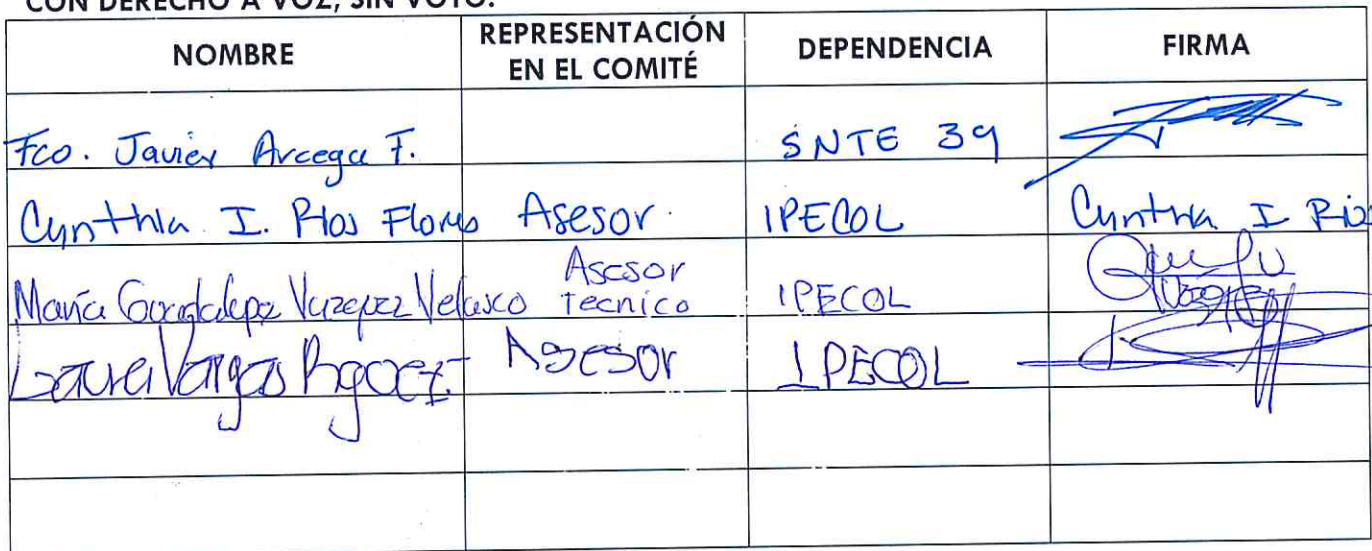 CON DERECHO A VOZ, SIN VOTO.
NOMBRE REPRESENTACIÓN EN EL COMITÉ DEPENDENCIA FIRMA
Fco. Javier Arcega F. SNTE 39
Cynthia I. Ríos Flores Asesor IPECOL Cynthia I Ríos
María Guadalupe Vazquez Velasco Asesor Tecnico IPECOL
Laura Vargas Asesor IPECOL